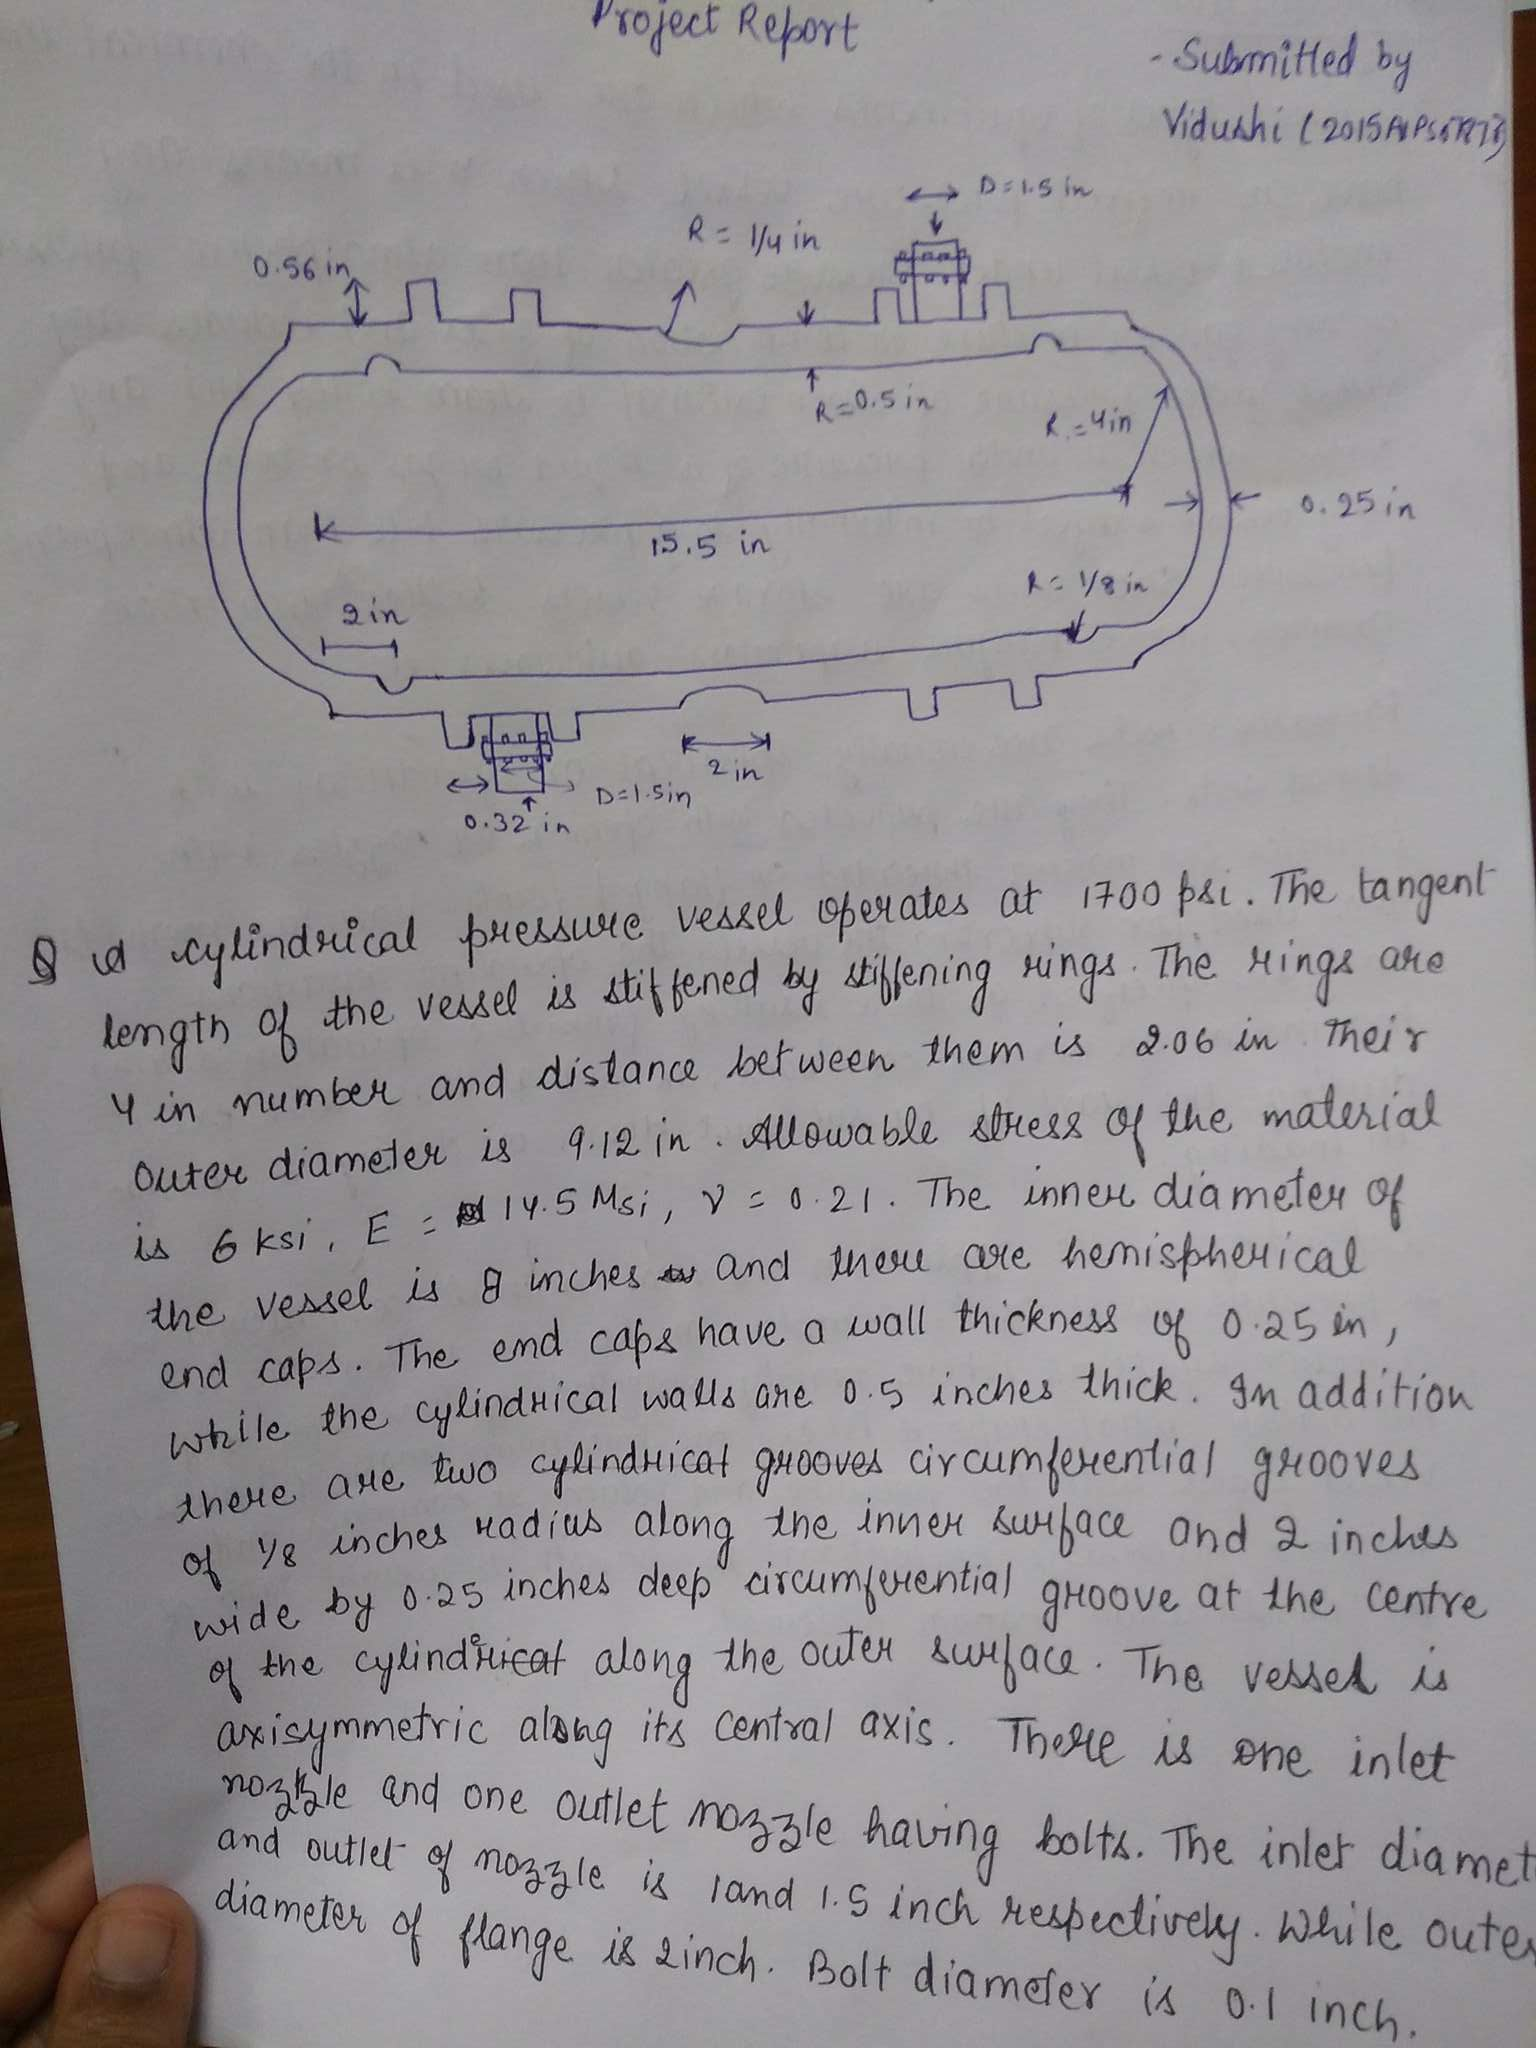 Project Report
- Submitted by
Vidushi
D = 1.5 in
R = 1/4 in
0.56 in
R = 0.5 in
R = 4 in
0.25 in
15.5 in
R = 1/8 in
2 in
2 in
D = 1.5 in
0.32 in
Q A cylindrical pressure vessel operates at 1700 psi. The tangent
length of the vessel is stiffened by stiffening rings. The rings are
4 in number and distance between them is 2.06 in. Their
outer diameter is 9.12 in. Allowable stress of the material
is 6 ksi, E = 14.5 Msi, ν = 0.21. The inner diameter of
the vessel is 8 inches and there are hemispherical
end caps. The end caps have a wall thickness of 0.25 in,
while the cylindrical walls are 0.5 inches thick. In addition
there are two cylindrical grooves circumferential grooves
of 1/8 inches radius along the inner surface and 2 inches
wide by 0.25 inches deep circumferential groove at the centre
of the cylinder along the outer surface. The vessel is
axisymmetric along its central axis. There is one inlet
nozzle and one outlet nozzle having bolts. The inlet diamet
and outlet of nozzle is 1 and 1.5 inch respectively. While outer
diameter of flange is 2 inch. Bolt diameter is 0.1 inch.